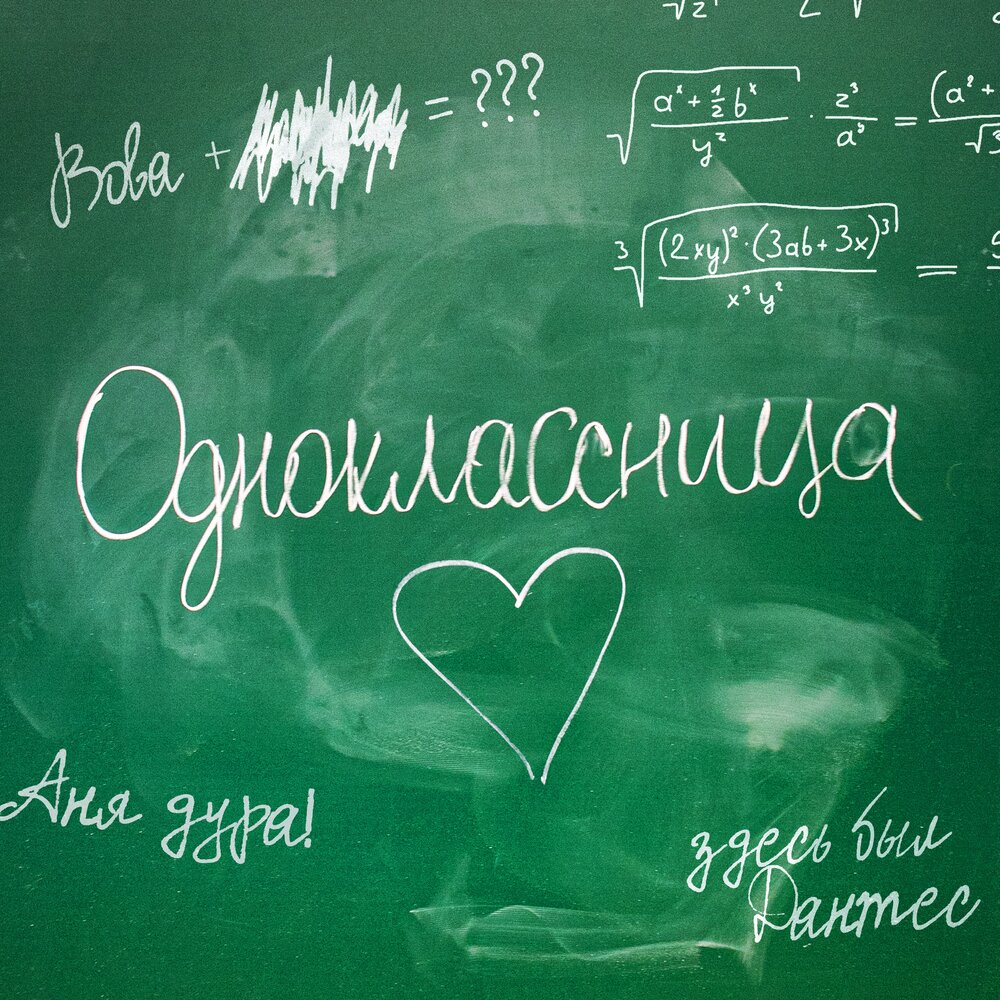 √z
Вова + = ???
√(aˣ + ½ bˣ / y²) · z³/a⁵ = (a² +
√3
³√((2xy)² · (3ab + 3x)³ / x³y²) =
Одноклассница
Аня дура!
здесь был
Дантес